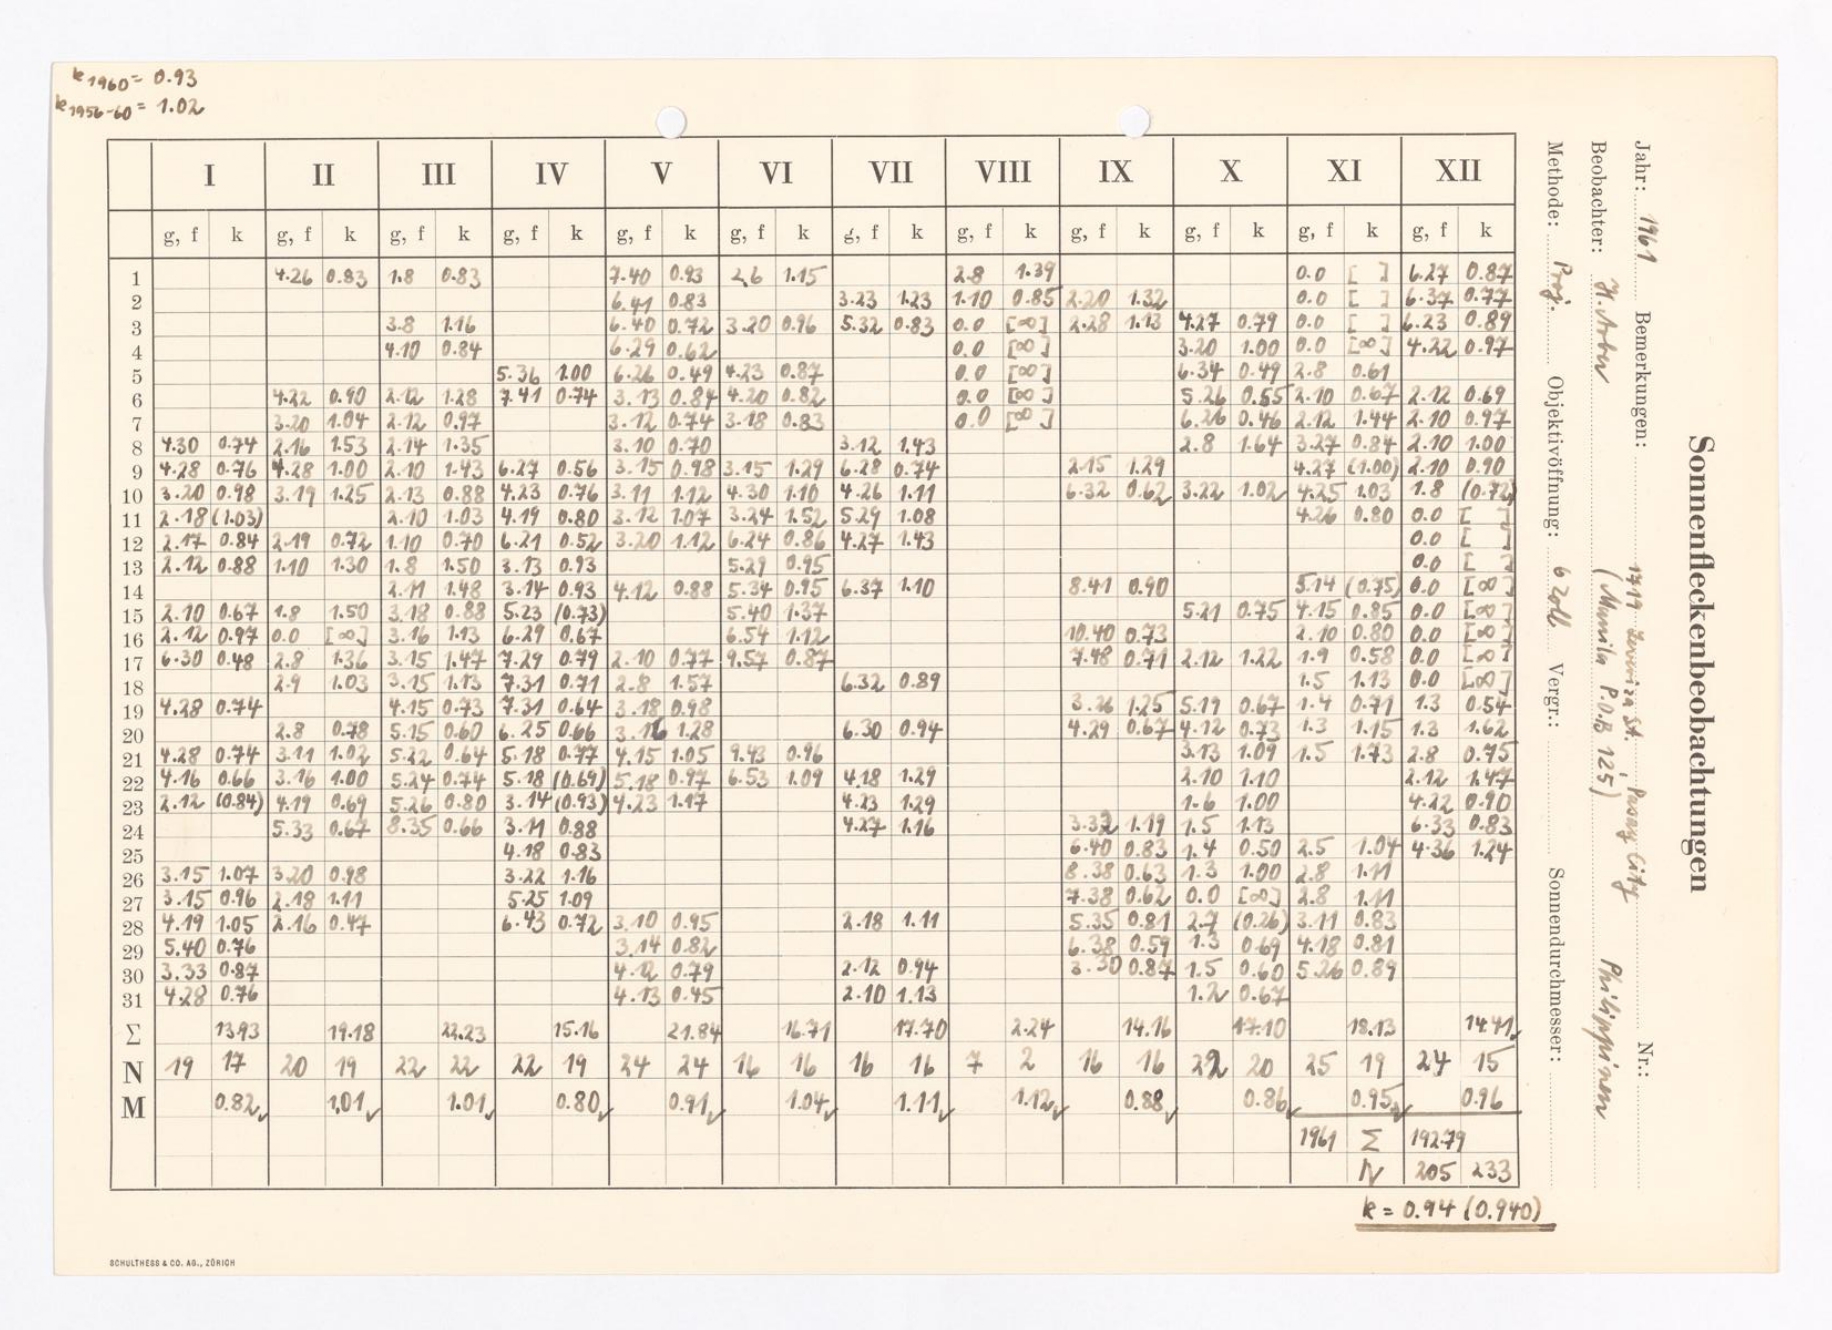 k1960 = 0.93
k1956-60 = 1.02
Sonnenfleckenbeobachtungen
Jahr: 1961 Bemerkungen: 1719 St., Pasay City Nr.:
Beobachter: (Manila P.O.B 125) Philippinen
Methode: Proj. Objektivöffnung: 6 Zoll Vergr.: Sonnendurchmesser:
I II III IV V VI VII VIII IX X XI XII
g, f k g, f k g, f k g, f k g, f k g, f k g, f k g, f k g, f k g, f k g, f k g, f k
1 4.26 0.83 1.8 0.83 7.40 0.93 2.6 1.15 2.8 1.39 0.0 [ ] 6.27 0.87
2 6.41 0.83 3.23 1.23 1.10 0.85 2.20 1.32 0.0 [ ] 6.37 0.77
3 3.8 1.16 6.40 0.72 3.20 0.96 5.32 0.83 0.0 [∞] 2.28 1.13 4.27 0.79 0.0 [ ] 6.23 0.89
4 4.10 0.84 6.29 0.62 0.0 [∞] 3.20 1.00 0.0 [∞] 4.22 0.97
5 5.36 1.00 6.26 0.49 4.23 0.87 0.0 [∞] 6.34 0.49 2.8 0.61
6 4.22 0.90 2.12 1.28 7.41 0.74 3.13 0.84 4.20 0.82 0.0 [∞] 5.26 0.55 2.10 0.67 2.12 0.69
7 3.20 1.04 2.12 0.97 3.12 0.74 3.18 0.83 0.0 [∞] 6.26 0.46 2.12 1.44 2.10 0.97
8 4.30 0.74 2.16 1.53 2.14 1.35 3.10 0.70 3.12 1.43 2.8 1.64 3.27 0.84 2.10 1.00
9 4.28 0.76 4.28 1.00 2.10 1.43 6.27 0.56 3.15 0.98 3.15 1.29 6.28 0.74 2.15 1.29 4.27 (1.00) 2.10 0.90
10 3.20 0.98 3.19 1.25 2.13 0.88 4.23 0.76 3.11 1.12 4.30 1.10 4.26 1.11 6.32 0.62 3.22 1.02 4.25 1.03 1.8 (0.72)
11 2.18 (1.03) 2.10 1.03 4.19 0.80 3.12 1.07 3.24 1.52 5.29 1.08 4.26 0.80 0.0 [ ]
12 2.17 0.84 2.19 0.72 1.10 0.70 6.21 0.52 3.20 1.12 6.24 0.86 4.27 1.43 0.0 [ ]
13 2.12 0.88 1.10 1.30 1.8 1.50 3.13 0.93 5.29 0.95 0.0 [ ]
14 2.11 1.48 3.14 0.93 4.12 0.88 5.34 0.95 6.37 1.10 8.41 0.90 5.14 (0.75) 0.0 [∞]
15 2.10 0.67 1.8 1.50 3.18 0.88 5.23 (0.73) 5.40 1.37 5.21 0.75 4.15 0.85 0.0 [∞]
16 2.12 0.97 0.0 [∞] 3.16 1.13 6.29 0.67 6.54 1.12 10.40 0.73 2.10 0.80 0.0 [∞]
17 6.30 0.48 2.8 1.36 3.15 1.47 7.29 0.79 2.10 0.77 9.57 0.87 7.48 0.71 2.12 1.22 1.9 0.58 0.0 [∞]
18 2.9 1.03 3.15 1.13 7.31 0.71 2.8 1.57 6.32 0.89 1.5 1.13 0.0 [∞]
19 4.28 0.74 4.15 0.73 7.31 0.64 3.18 0.98 3.26 1.25 5.19 0.67 1.4 0.71 1.3 0.54
20 2.8 0.78 5.15 0.60 6.25 0.66 3.16 1.28 6.30 0.94 4.29 0.67 4.12 0.73 1.3 1.15 1.3 1.62
21 4.28 0.74 3.11 1.02 5.22 0.64 5.18 0.77 4.15 1.05 9.43 0.96 3.13 1.09 1.5 1.73 2.8 0.75
22 4.16 0.66 3.16 1.00 5.24 0.74 5.18 (0.69) 5.18 0.97 6.53 1.09 4.18 1.29 2.10 1.10 2.12 1.47
23 2.12 (0.84) 4.19 0.69 5.26 0.80 3.14 (0.93) 4.23 1.17 4.23 1.29 1.6 1.00 4.22 0.90
24 5.33 0.67 8.35 0.66 3.11 0.88 4.27 1.16 3.32 1.19 1.5 1.13 6.33 0.83
25 4.18 0.83 6.40 0.83 1.4 0.50 2.5 1.04 4.36 1.24
26 3.15 1.07 3.20 0.98 3.22 1.16 8.38 0.63 1.3 1.00 2.8 1.11
27 3.15 0.96 2.18 1.11 5.25 1.09 7.38 0.62 0.0 [∞] 2.8 1.11
28 4.19 1.05 2.16 0.47 6.43 0.72 3.10 0.95 2.18 1.11 5.35 0.81 2.7 (0.26) 3.11 0.83
29 5.40 0.76 3.14 0.82 6.38 0.59 1.3 0.69 4.18 0.81
30 3.33 0.87 4.12 0.79 2.12 0.94 3.30 0.87 1.5 0.60 5.26 0.89
31 4.28 0.76 4.13 0.45 2.10 1.13 1.2 0.67
Σ 13.93 19.18 22.23 15.16 21.84 16.71 17.70 2.24 14.16 17.10 18.13 14.41
N 19 17 20 19 22 22 22 19 24 24 16 16 16 16 7 2 16 16 22 20 25 19 24 15
M 0.82 1.01 1.01 0.80 0.91 1.04 1.11 1.12 0.88 0.86 0.95 0.96
1961 Σ 192.79
N 205 233
k = 0.94 (0.940)
SCHULTHESS & CO. AG., ZÜRICH